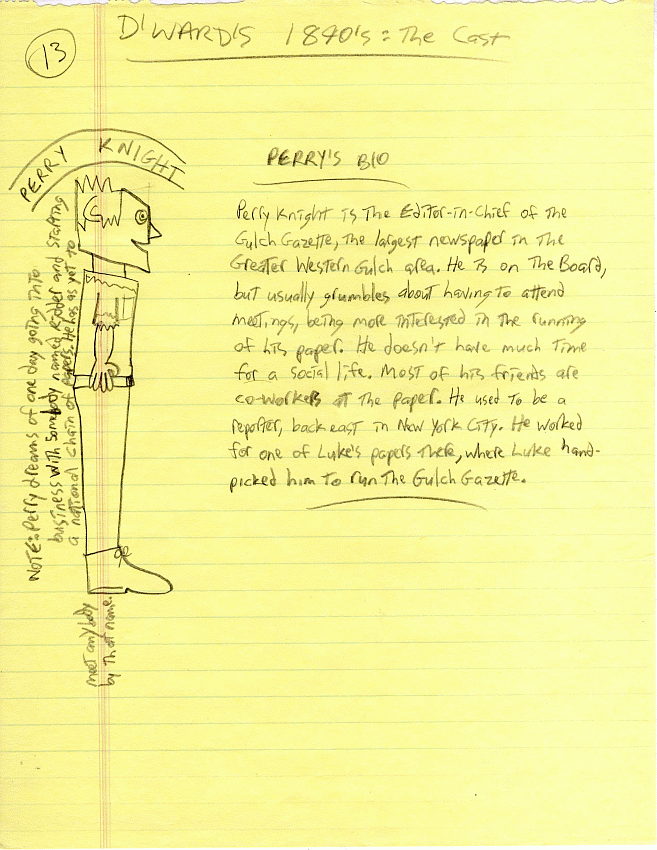 13
D'WARD'S 1840's: The Cast
PERRY KNIGHT
PERRY'S BIO
Perry Knight is The Editor-in-Chief of the
Gulch Gazette, the largest newspaper in The
Greater Western Gulch area. He is on The Board,
but usually grumbles about having to attend
meetings, being more interested in the running
of his paper. He doesn't have much time
for a social life. Most of his friends are
co-workers at the paper. He used to be a
reporter, back east in New York City. He worked
for one of Luke's papers there, where Luke hand-
picked him to run The Gulch Gazette.
NOTE: Perry dreams of one day going into
business with somebody named Ridder and starting
a national chain of papers. He has as yet to
meet anybody
by that name.